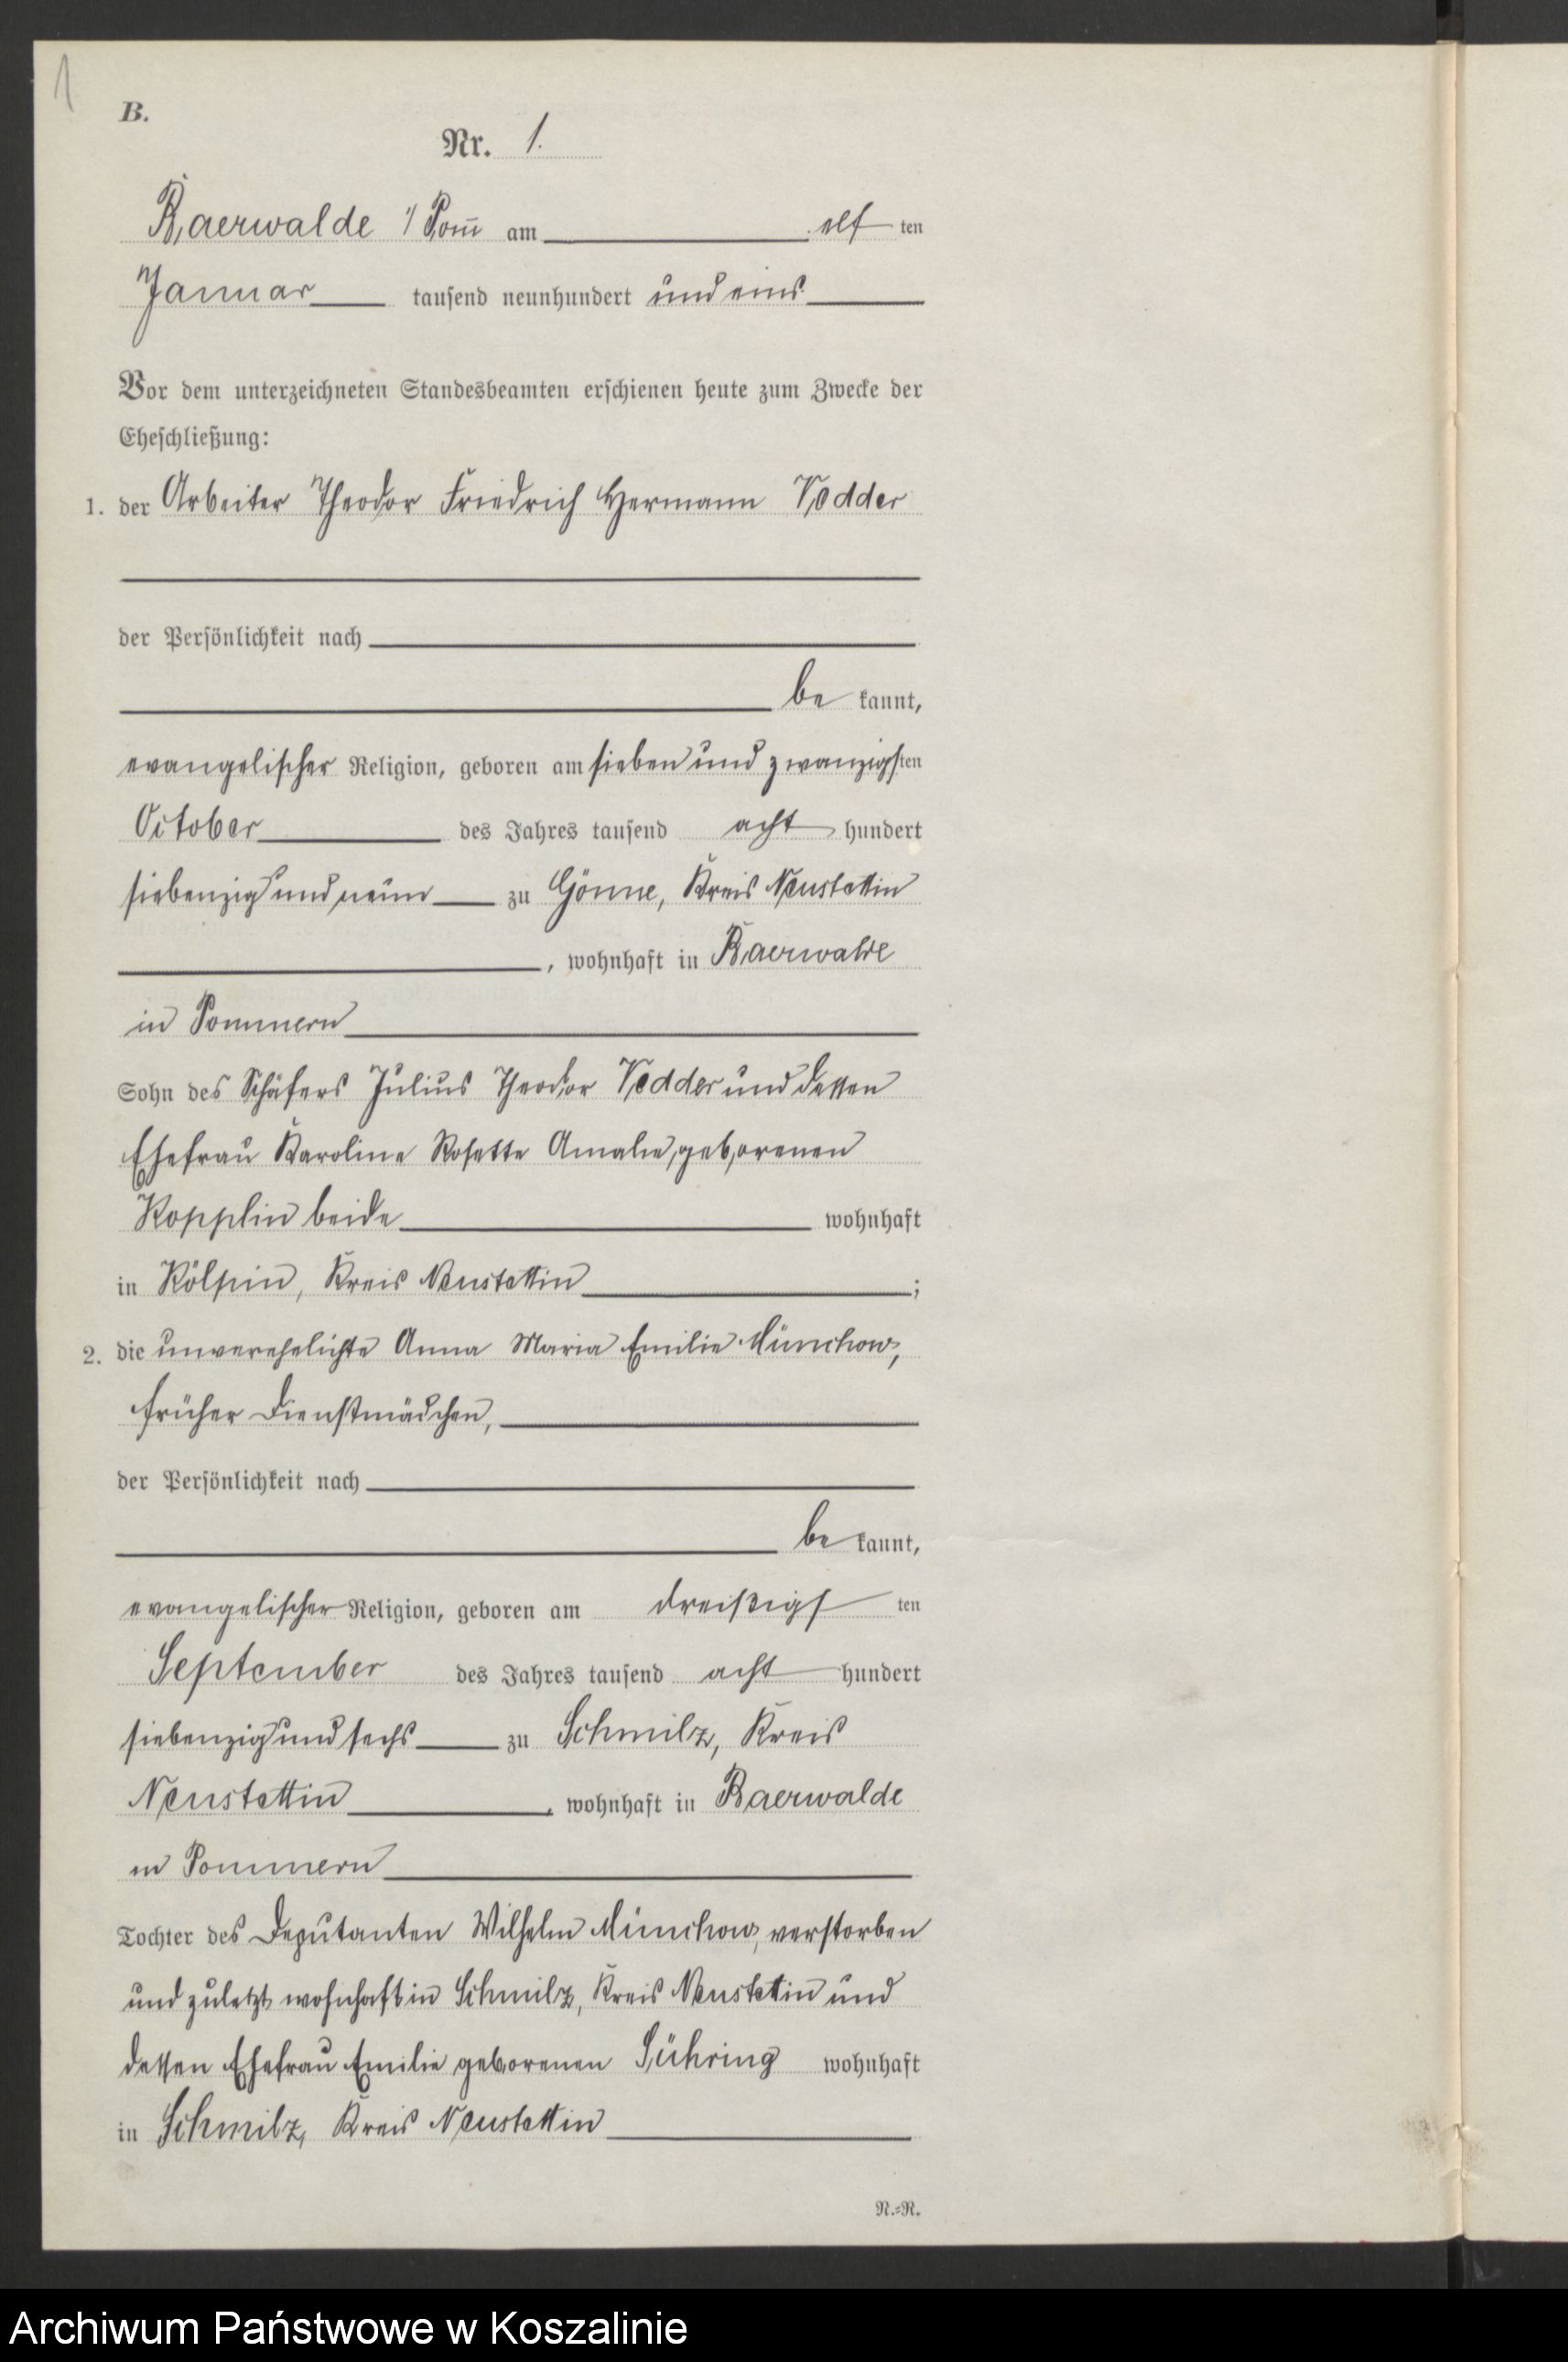 1
B.
Nr. 1.
Baerwalde i/Pom̄ am elf ten
Januar tausend neunhundert und eins
Vor dem unterzeichneten Standesbeamten erschienen heute zum Zwecke der
Eheschließung:
1. der Arbeiter Theodor Friedrich Hermann Vedder
der Persönlichkeit nach
be kannt,
evangelischer Religion, geboren am sieben und zwanzigsten
October des Jahres tausend acht hundert
siebenzig und neun zu Gönne, Kreis Neustettin
, wohnhaft in Baerwalde
in Pommern
Sohn des Schäfers Julius Theodor Vedder und dessen
Ehefrau Karoline Rosette Amalie, geborenen
Kopplin beide wohnhaft
in Kölpin, Kreis Neustettin ;
2. die unverehelichte Anna Maria Emilie Münchow,
früher Dienstmädchen,
der Persönlichkeit nach
be kannt,
evangelischer Religion, geboren am dreißigs ten
September des Jahres tausend acht hundert
siebenzig und sechs zu Schmilz, Kreis
Neustettin , wohnhaft in Baerwalde
in Pommern
Tochter des Deputanten Wilhelm Münchow, verstorben
und zuletzt wohnhaft in Schmilz, Kreis Neustettin und
dessen Ehefrau Emilie geborenen Sühring wohnhaft
in Schmilz, Kreis Neustettin
N.-R.
Archiwum Państwowe w Koszalinie